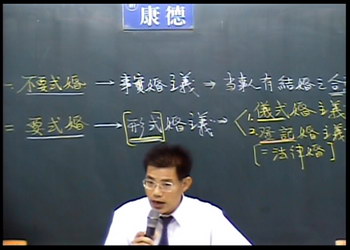 康德
一.不要式婚 → 事實婚主義 → 当事人有結婚之合
二 要式婚 → [形式]婚主義 → < 1.儀式婚主義
2.登記婚主義
[=法律婚]